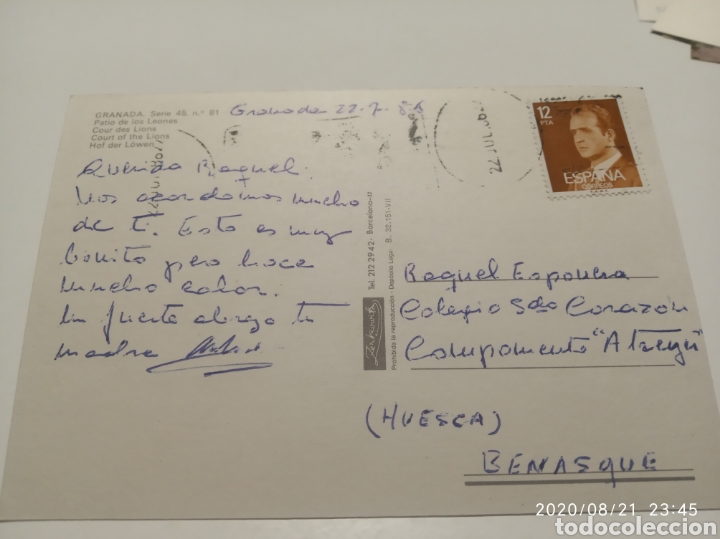 GRANADA. Serie 45, n.º 81
Patio de los Leones
Cour des Lions
Court of the Lions
Hof der Löwen
Granada 22-7-86
Querida Raquel.
Nos acordamos mucho
de ti. Esto es muy
bonito pero hace
mucho calor.
Un fuerte abrazo tu
madre
Tel. 212 29 42 - Barcelona-17
Prohibida la reproducción - Depósito Legal B. 32.151-VII
12
PTA
ESPAÑA
CORREOS
22 JUL
Raquel Esponera
Colegio Sdo Corazon
Campamento "
(HUESCA)
BENASQUE
2020/08/21 23:45
todocoleccion